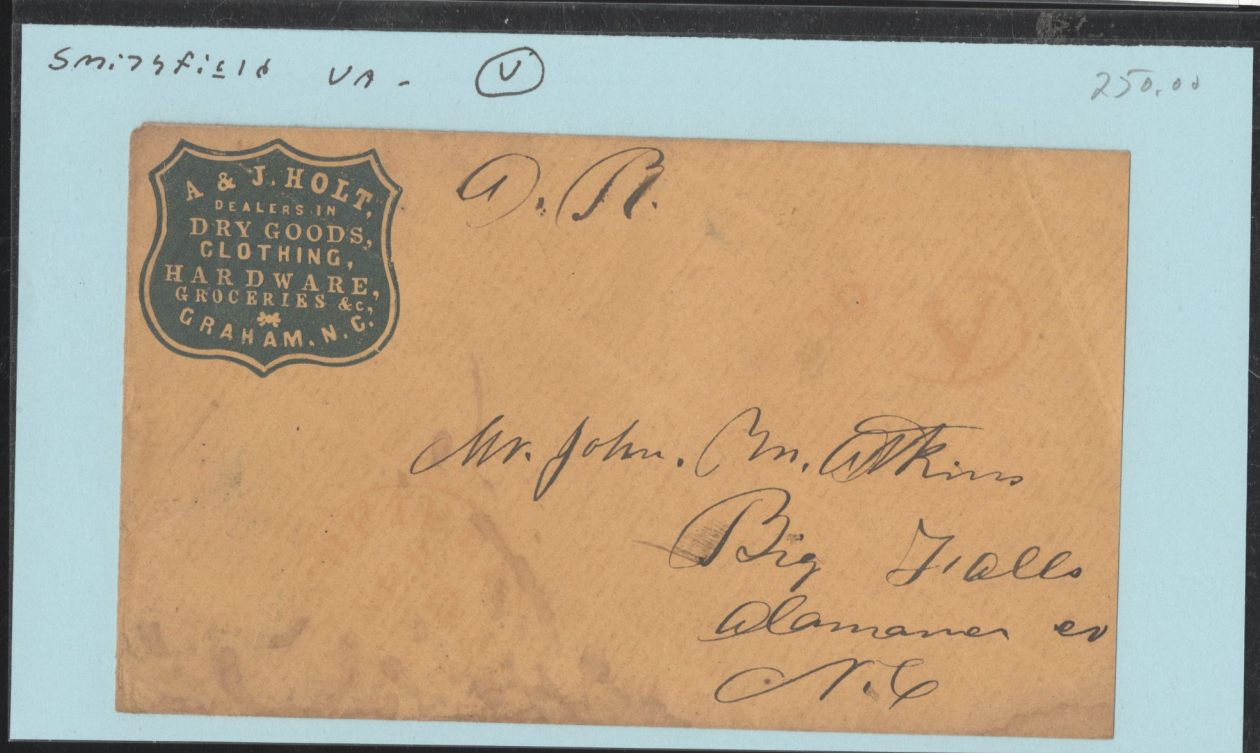 Smithfield VA - V
250.00
A & J. HOLT,
DEALERS IN
DRY GOODS,
CLOTHING,
HARDWARE,
GROCERIES &c,
GRAHAM. N. C.
A. R.
Mr. John. M. Atkins
Big Falls
Alamance co
N.C